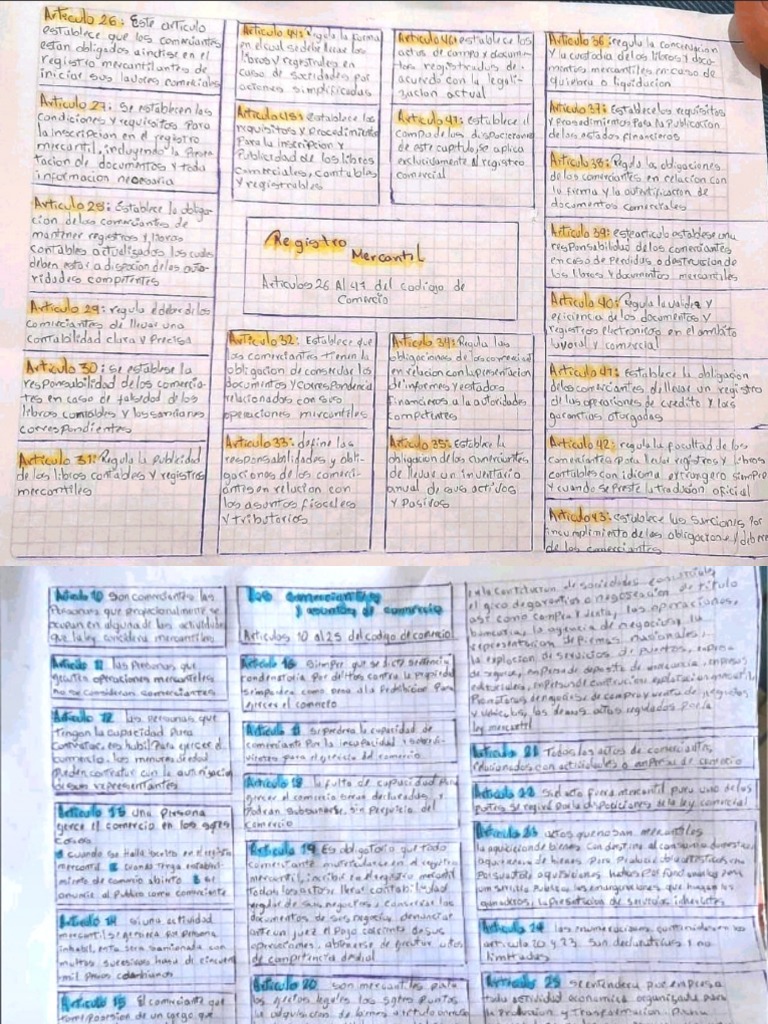 Articulo 26: Este articulo
establece que los comerciantes
estan obligados a incirse en el
registro mercantil antes de
iniciar sus labores comerciales
Articulo 27: Se establecen las
condiciones y requisitos para
la inscripcion en el registro
mercantil, incluyendo la
tacion de documentos y toda
informacion necesaria
Articulo 28: Establece la obliga-
cion de los comerciantes de
mantener registros y libros
contables actualizados los cuales
deben estar a disposcion de las auto-
ridades competentes
Articulo 29: regula el deber de los
comerciantes de llevar una
contabilidad clara y Precisa
Articulo 30: se establese la
responsabilidad de los comercia-
tes en caso de falsedad de los
libros contables y las sanciones
correspondientes
Articulo 31: Regula la publicidad
de los libros contables y registros
mercantiles
Articulo 44: regula la forma
en el cual se debe llevar los
libros y registrales en
caso de sociedades por
acciones simplificadas
Articulo 45: Establece los
requisitos y Procedimientos
Para la inscripcion y
Publicidad de los libros
Comerciales, contables
y registrables
Articulo 46: establece los
actos de campo y documen-
tos registrados de
acuerdo con la legali-
zacion actual
Articulo 47: establece el
campo de las dispociciones
de este capitulo, se aplica
exclucidamente al registro
comercial
Registro
Mercantil
Articulos 26 Al 47 del codigo de
Comercio
Articulo 32: Establece que
los comerciantes tienen la
obligacion de construlir los
documentos y correspondencia
relacionados con sus
operaciones mercantiles
Articulo 33: define las
responsabilidades y obli-
gaciones de los comerci-
antes en relacion con
los asuntos fisceles
y tributarios
Articulo 34: Regula las
obligaciones de los comerci
en relacion con la presentacion
de informes y estados
financieros a la autoridades
competentes
Articulo 35: Establece la
obligacion de los comerciantes
de llevar un inventario
anual de sus activos
y Pasivos
Articulo 36: regula la concervacion
y la custodia de los libros y docu-
mentos mercantiles en caso de
quiebra o liquidacion
Articulo 37: Establece los requisitos
y Procedimientos Para la Publicacion
de los estados financieros
Articulo 38: Regula la obligaciones
de los comerciantes en relacion con
la firma y la autentificacion de
documentos comerciales
Articulo 39: este articulo establese una
responsabilidad de los comerciantes
en caso de Perdidas o destruccion de
los libros y documentos mercantiles
Articulo 40: Regula la validez y
eficiencia de los documentos y
registros electronicos en el ambito
layoral y comercial
Articulo 41: Establece la obligacion
de los comerciantes de llevar un registro
de las operaciones de credito y las
garantias otorgadas
Articulo 42: regula la facultad de los
comerciantes para llevar registros y libros
contables con idioma extrangero siempre
y cuando se preste la traducion oficial
Articulo 43: establece las sanciones por
incumplimiento de las obligaciones y deberes
de los comerciantes
Articulo 10 Son comerciantes las
Personas que profecionalmente se
ocupan en alguna de las actividades
que la ley considera mercantiles
Articulo 11 las Personas que
operaciones mercantiles
no se consideran comerciantes
Articulo 12 las personas que
tengan la capacidad para
contratar, es habil Para ejercer el
comercio. los menores de edad
Pueden contratar con la autorizacion
de sus representantes
Articulo 13 Una Persona
ejerce el comercio en los
casos
cuando se halla inscrito en el registro
mercantil cuando tenga estableci-
miento de comercio abierto
anuncie al Publico como comerciante
Articulo 14 si una actividad
mercantil es ejercida por persona
inhabil, esta sera sancionada con
multas sucesivas hasta de cincuenta
mil pesos colombianos
Articulo 15 El comerciante que
tome posesion de un cargo que
Los comerciantes
y asuntos de comercio
Articulos 10 al 25 del codigo de comercio
Articulo 16 Siempre que se dicte sentencia
condenatoria Por delitos contra la propiedad
como pena la Prohibicion Para
ejercer el comercio
Articulo 17 se perdera la capacidad de
comerciante Por la incapacidad
para el ejercicio del comercio
Articulo 18 la falta de capacidad Para
ejercer el comercio seran declaradas
Podran subsanarse, sin perjuicio del
comercio
Articulo 19 Es obligatorio que todo
comerciante matricularse en el registro
mercantil, incribir en el registro mercantil
Todos los actos llevar contabilidad
regular de sus negocios, conservar los
documentos de sus negocio, denunciar
ante un juez el Pago de sus
operaciones, abtenerse de ejecutar actos
de competencia desleal
Articulo 20 son mercantiles para
los efectos legales
la adquisicion de bienes a titulo
en la constitucion de sociedades comerciales
el giro de garantias o negociacion de titulo
asi como compra y venta, las operaciones
bancarias, la agencia de negocios, la
representacion de firmas nacionales,
la explotacion de servicios de puertos,
de seguros, empresa de deposito de mercancia, empresas
editoriales,
Promotoras de negocios de compra y venta de negocios
y vehiculos, los demas actos regulados por la
ley mercantil
Articulo 21 Todos los actos de comerciantes
relacionados con actividades o empresas de comercio
Articulo 22 Si el acto fuera mercantil para uno de las
partes se regira Por la disposiciones de la ley comercial
Articulo 23 actos que no san mercantiles
la adquicion de bienes Con destino al consumo domestico
Articulo 24 las enumeraciones contenidas en los
articulo 20 y 23 son declarativas y no
limitadas
Articulo 25 se entendera por empresa
toda actividad economica organizada para
la Produccion y Trasformacion